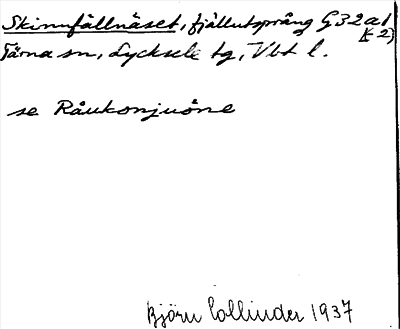 Skinnfällnäset, fjällutsprång G32a1
(k2)
Tärna sn, Lycksele tg, Vbt l.
se Råukonjuóne
Björn Collinder 1937